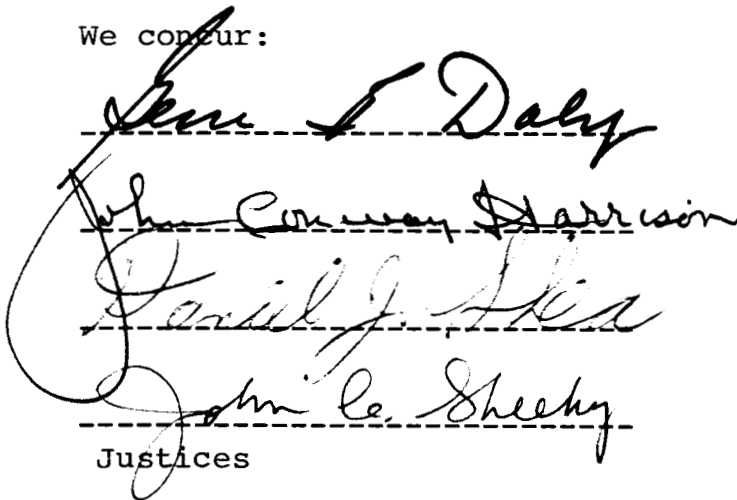 We concur:
Gene B Daly
John Conway Harrison
Daniel J. Shea
John C. Sheehy
Justices